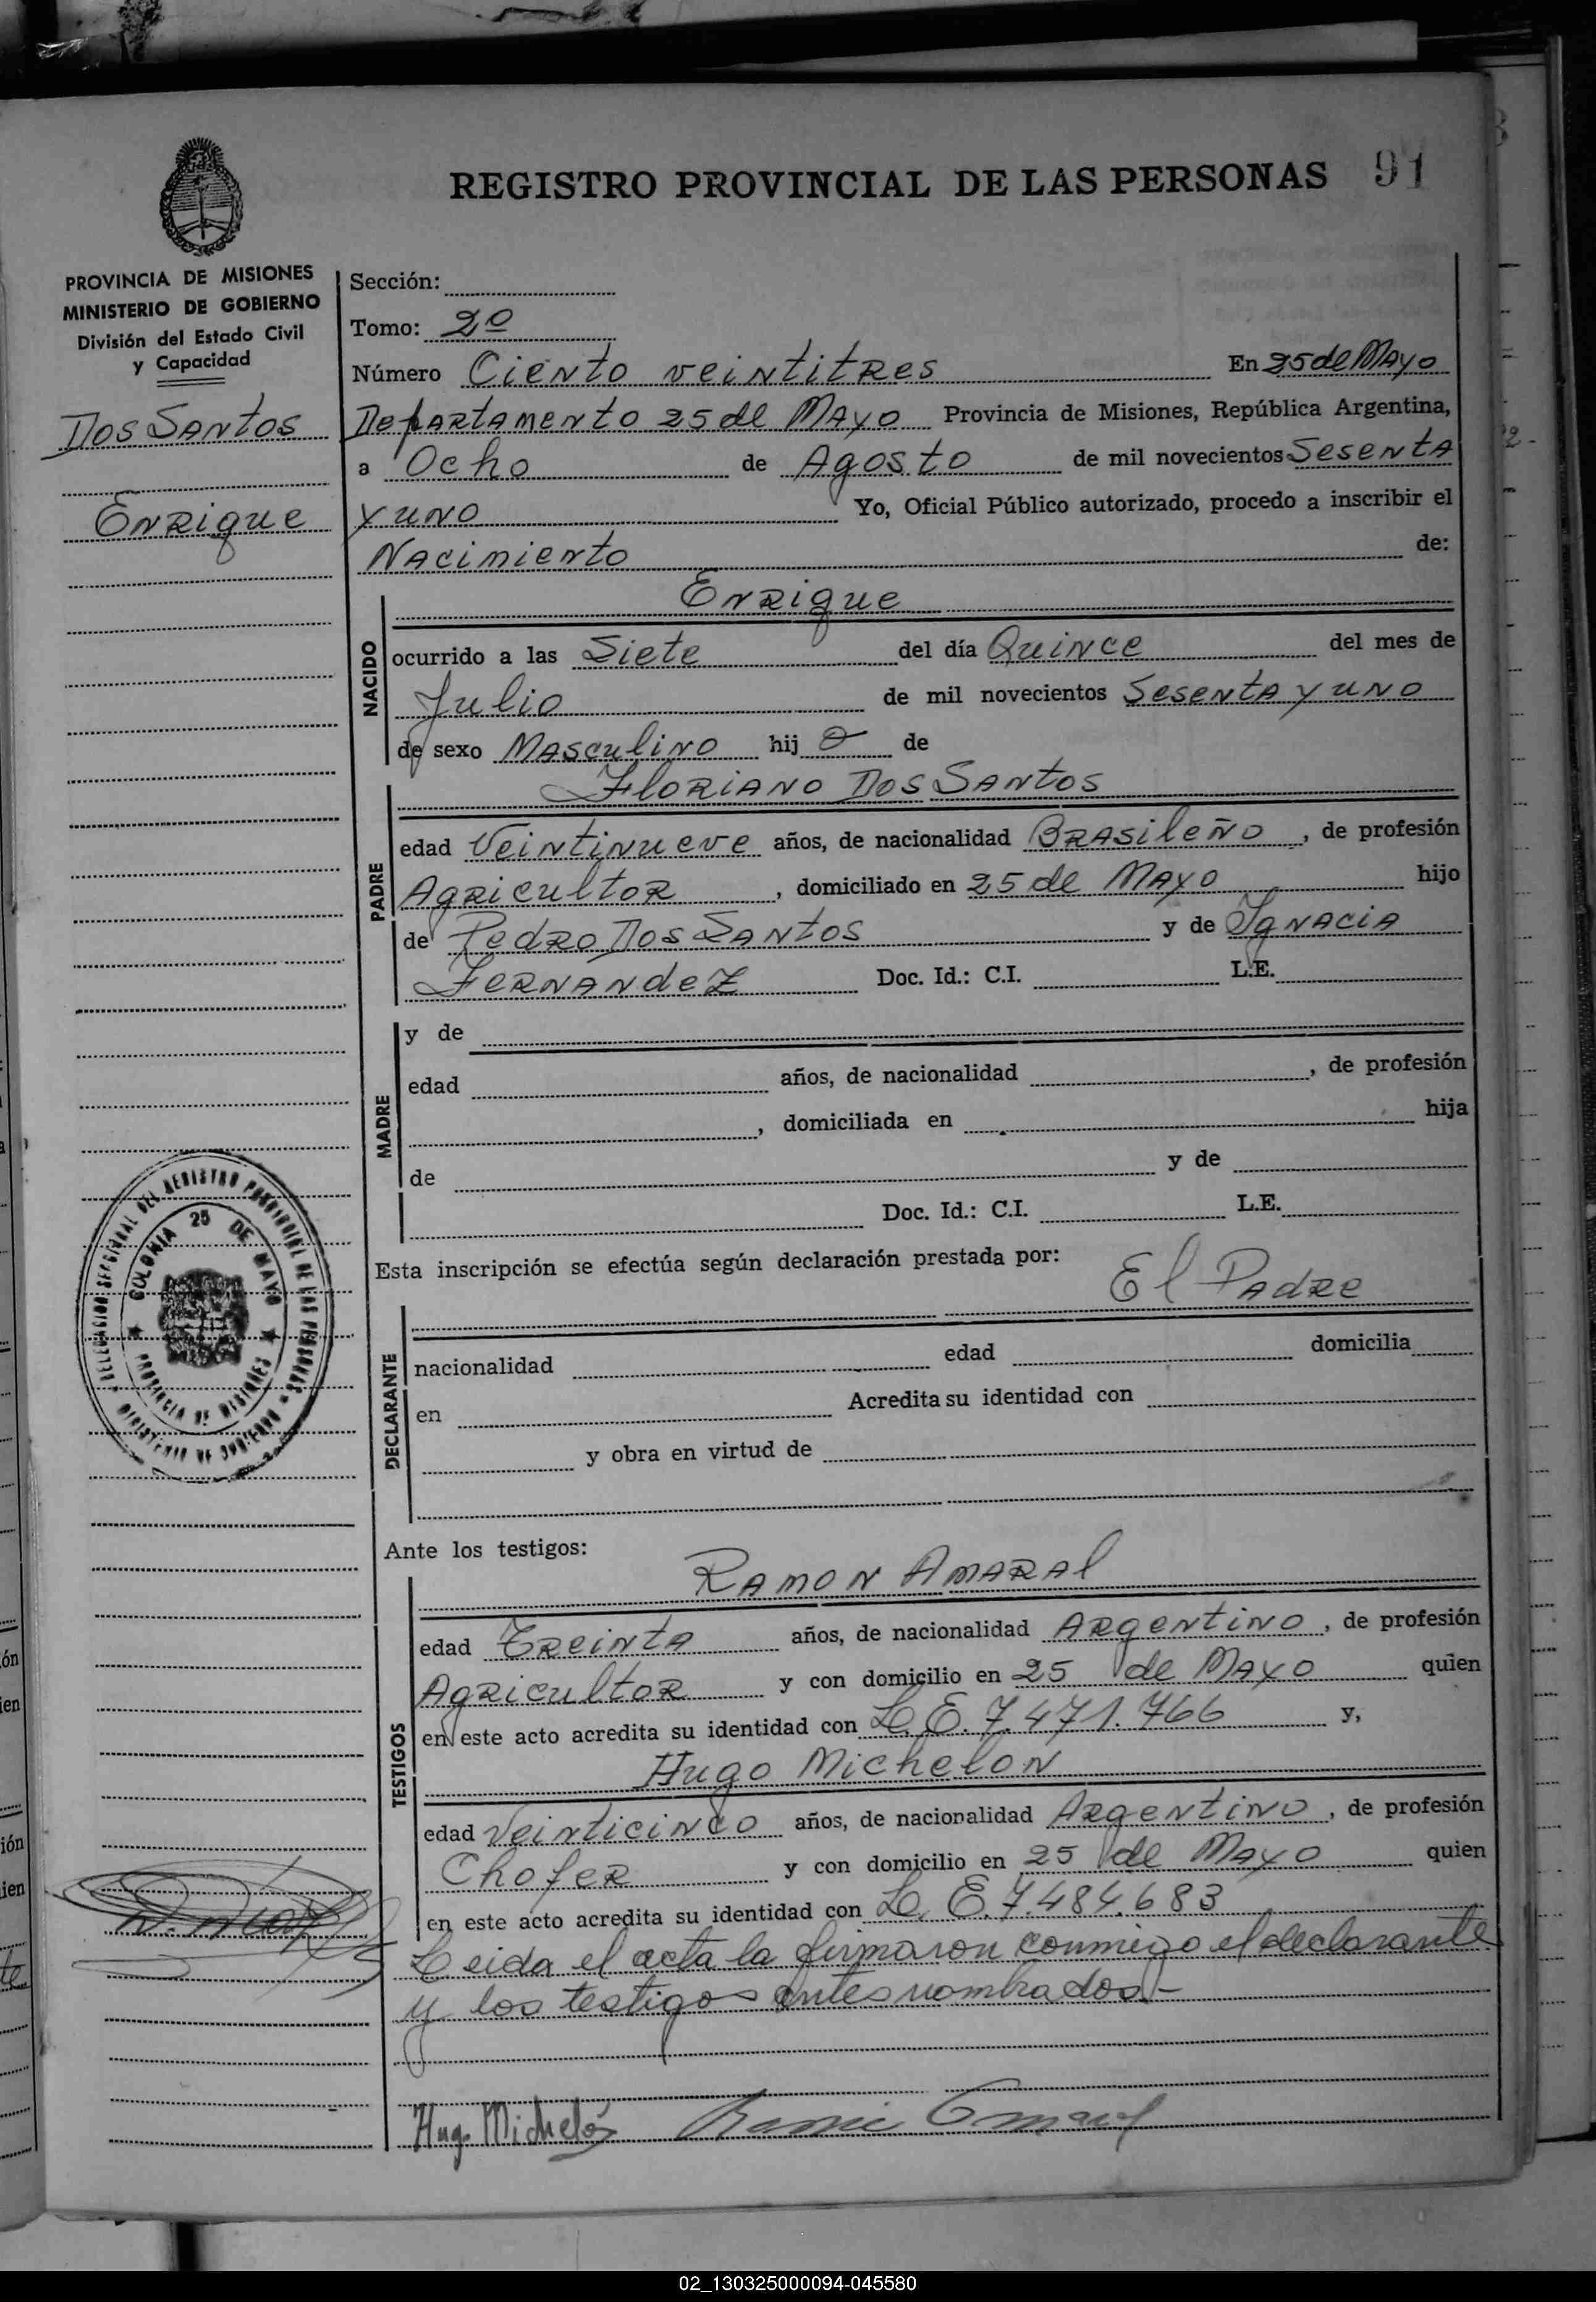 REGISTRO PROVINCIAL DE LAS PERSONAS 91
PROVINCIA DE MISIONES
MINISTERIO DE GOBIERNO
División del Estado Civil
y Capacidad
Dos Santos
Enrique
Sección:
Tomo: 2º
Número Ciento veintitres En 25 de Mayo
Departamento 25 de Mayo Provincia de Misiones, República Argentina,
a Ocho de Agosto de mil novecientos Sesenta
y uno Yo, Oficial Público autorizado, procedo a inscribir el
Nacimiento de:
NACIDO
Enrique
ocurrido a las Siete del día Quince del mes de
Julio de mil novecientos Sesenta y uno
de sexo Masculino hijo de
PADRE
Floriano Dos Santos
edad Veintinueve años, de nacionalidad Brasileño, de profesión
Agricultor, domiciliado en 25 de Mayo hijo
de Pedro Dos Santos y de Ignacia
Fernandez Doc. Id.: C.I. L.E.
MADRE
y de
edad años, de nacionalidad , de profesión
, domiciliada en hija
de y de
Doc. Id.: C.I. L.E.
DELEGACION SECCIONAL DEL REGISTRO PROVINCIAL DE LAS PERSONAS
MINISTERIO DE GOBIERNO
COLONIA 25 DE MAYO
PROVINCIA DE MISIONES
Esta inscripción se efectúa según declaración prestada por:
El Padre
DECLARANTE
nacionalidad edad domicilia
en Acredita su identidad con
y obra en virtud de
Ante los testigos:
TESTIGOS
Ramon Amaral
edad Treinta años, de nacionalidad Argentino, de profesión
Agricultor y con domicilio en 25 de Mayo quien
en este acto acredita su identidad con L.E. 7.471.766 y,
Hugo Michelon
edad Veinticinco años, de nacionalidad Argentino, de profesión
Chofer y con domicilio en 25 de Mayo quien
en este acto acredita su identidad con L.E. 7.484.683
Leida el acta la firmaron conmigo el declarante
y los testigos antes nombrados.-
Hugo Michelón
02_130325000094-045580